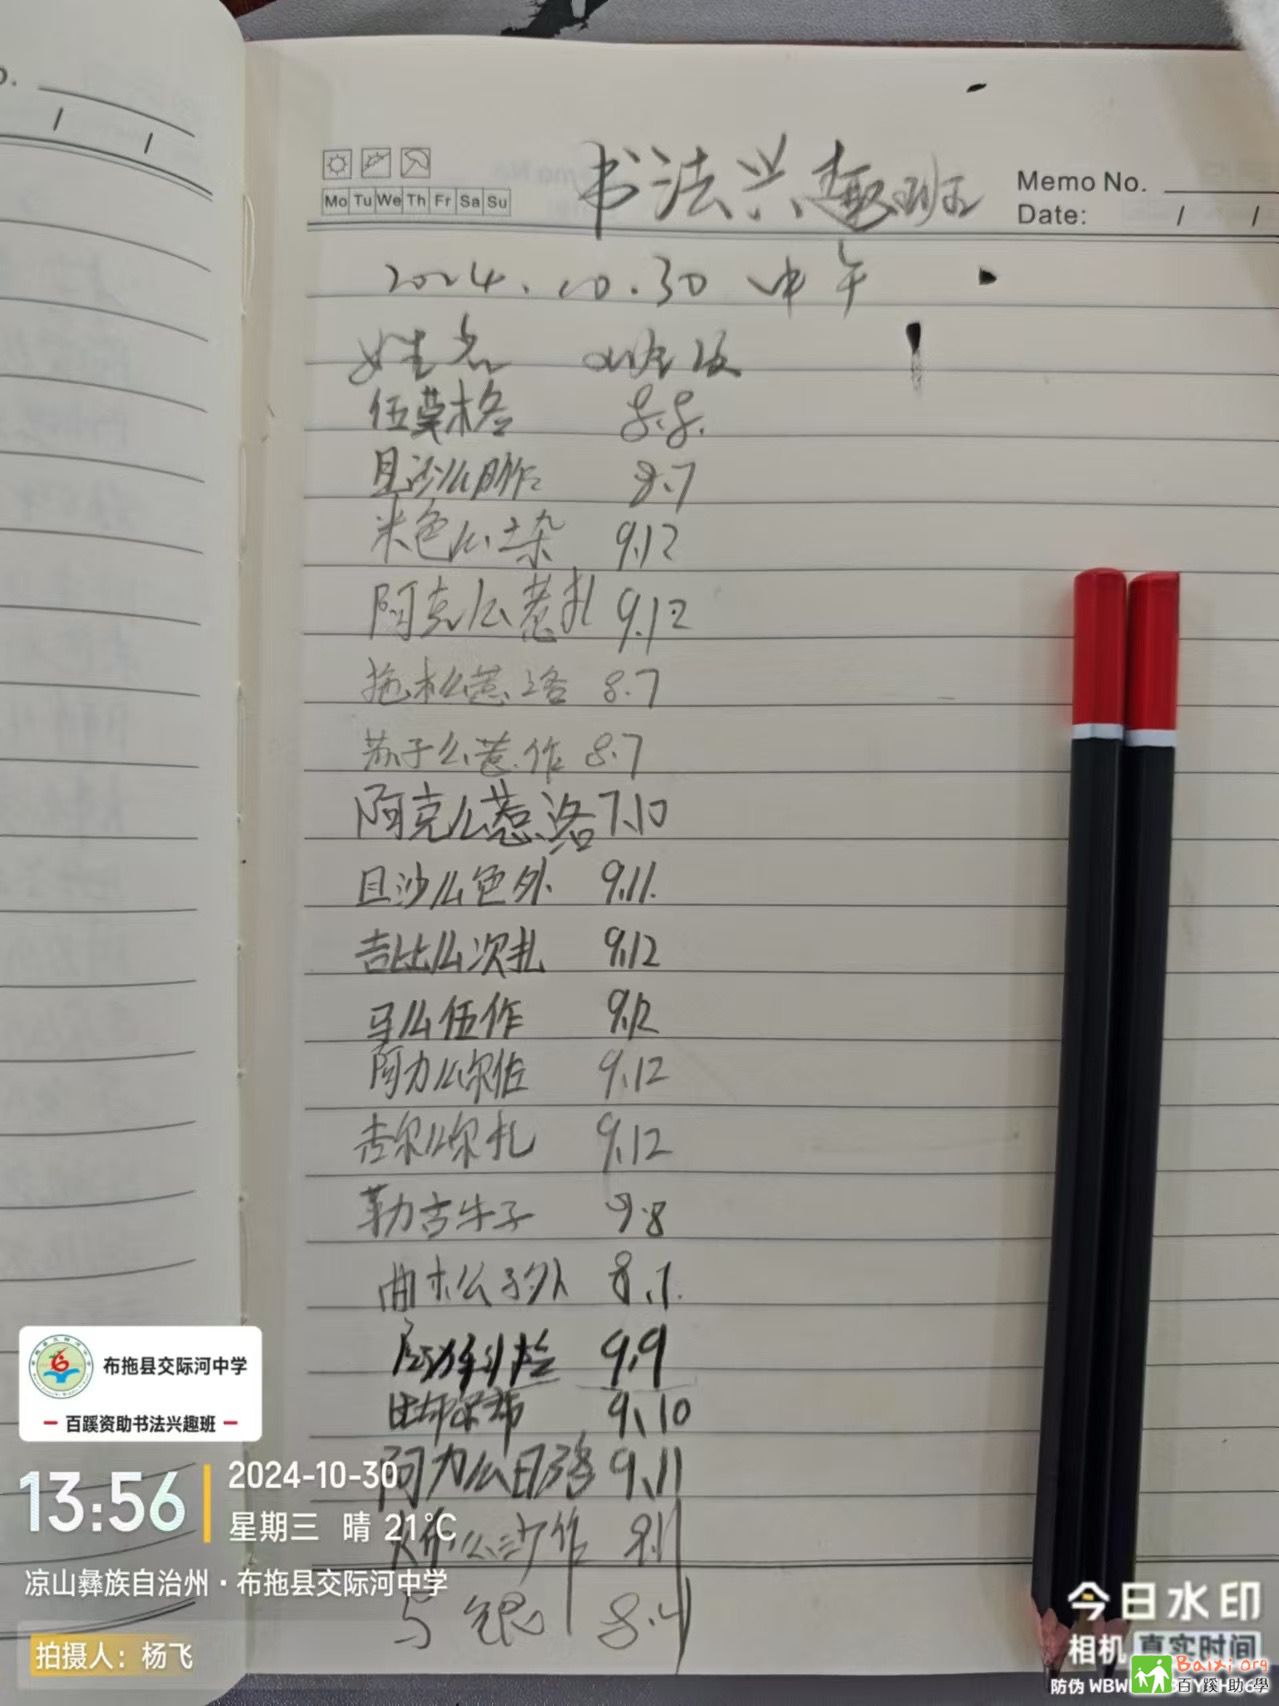 书法兴趣班
Mo Tu We Th Fr Sa Su
Memo No.
Date: / /
2024.10.30 中午
姓名 班级
伍莫格 8.8.
且沙么 8.7
米色么土杂 9.12
阿克么惹扎 9.12
拖木么惹洛 8.7
苏子么惹作 8.7
阿克么惹洛 7.10
且沙么色外 9.11.
吉比么次扎 9.12
马么伍作 9.12
阿力么尔佐 9.12
吉尔么尔扎 9.12
勒吉牛子 9.8
曲木么子外 8.1.
9.9
9.10
阿力么日洛 9.11
么沙作
8.4
布拖县交际河中学
百蹊资助书法兴趣班
13:56
2024-10-30
星期三 晴 21℃
凉山彝族自治州·布拖县交际河中学
拍摄人：杨飞
今日水印
相机 真实时间
防伪
Baixi.org
百蹊助學